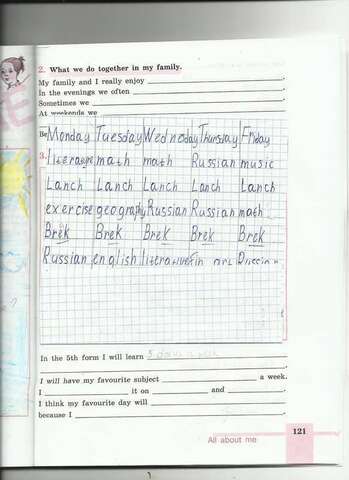 2. What we do together in my family.
My family and I really enjoy
In the evenings we often
Sometimes we
At weekends we
Be Monday Tuesday Wednesday Thursday Friday
3. literature math math Russian music
Lanch Lanch Lanch Lanch Lanch
exercise geography Russian Russian math
Brek Brek Brek Brek Brek
Russian english
In the 5th form I will learn 5 days a week
I will have my favourite subject a week.
I it on and
I think my favourite day will
because I
121
All about me